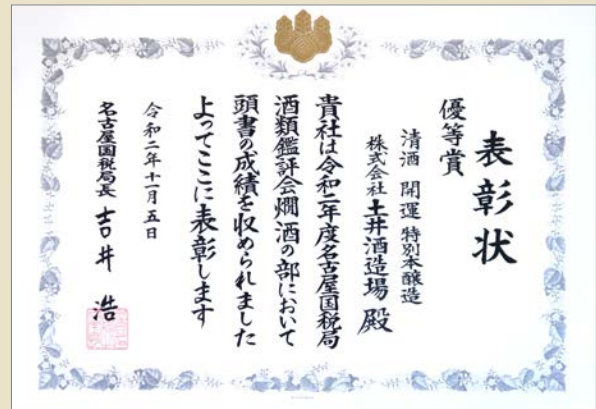 表彰状
優等賞
清酒 開運 特別本醸造
株式会社 土井酒造場 殿
貴社は令和二年度名古屋国税局
酒類鑑評会燗酒の部において
頭書の成績を収められました
よってここに表彰します
令和二年十一月五日
名古屋国税局長 吉井 浩